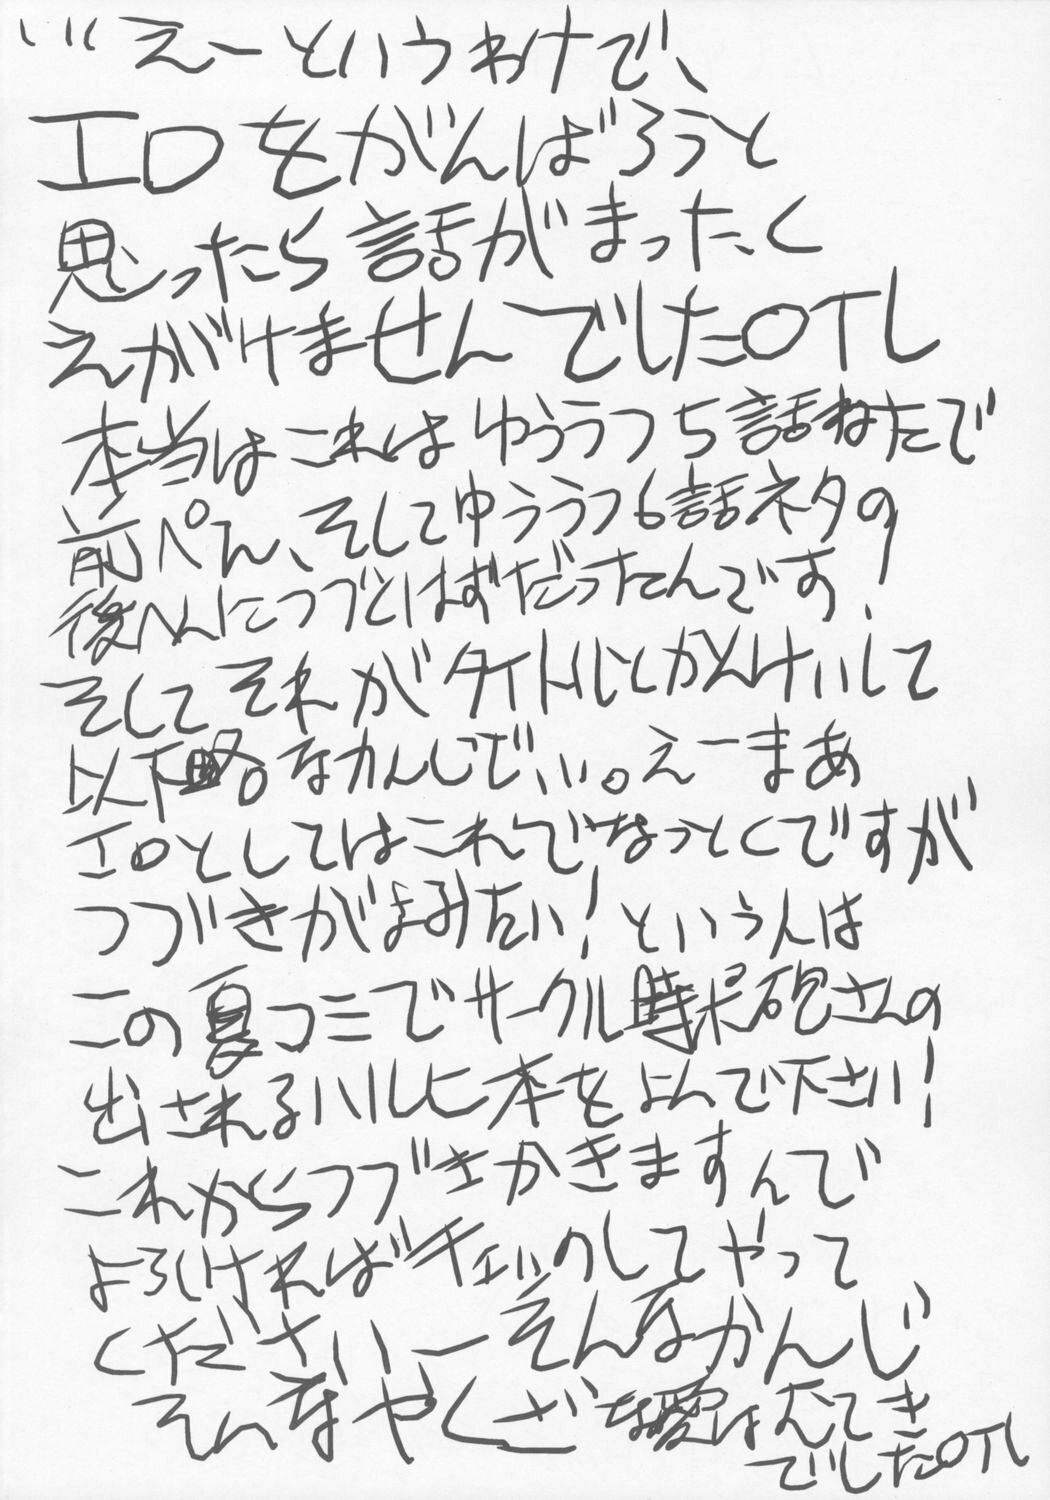 いいえーというわけで、
エロをがんばろうと
思ったら話がまったく
えがけませんでしたOTL
本当はこれはゆううつ5話ねたで
前ぺん、そしてゆううつ6話ネタの
後へんにつづくはずだったんです!
そしてそれがタイトルとかんけいして
以下略。なかんじで、い。えーまあ
エロとしてはこれでなっとくですが
つづきがよみたい!という人は
この夏コミでサークル砲さんの
出されるハルヒ本をよんで下さい!
これからつづきかきますんで
よろしければチェックしてやって
くださいーそんなかんじ
そんなやくざな愛はむてき
でしたOTL